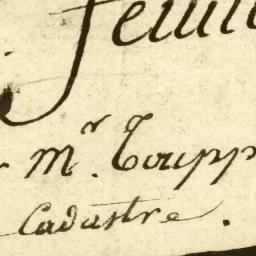 Feuill
Mr. Toupp
Cadastre.